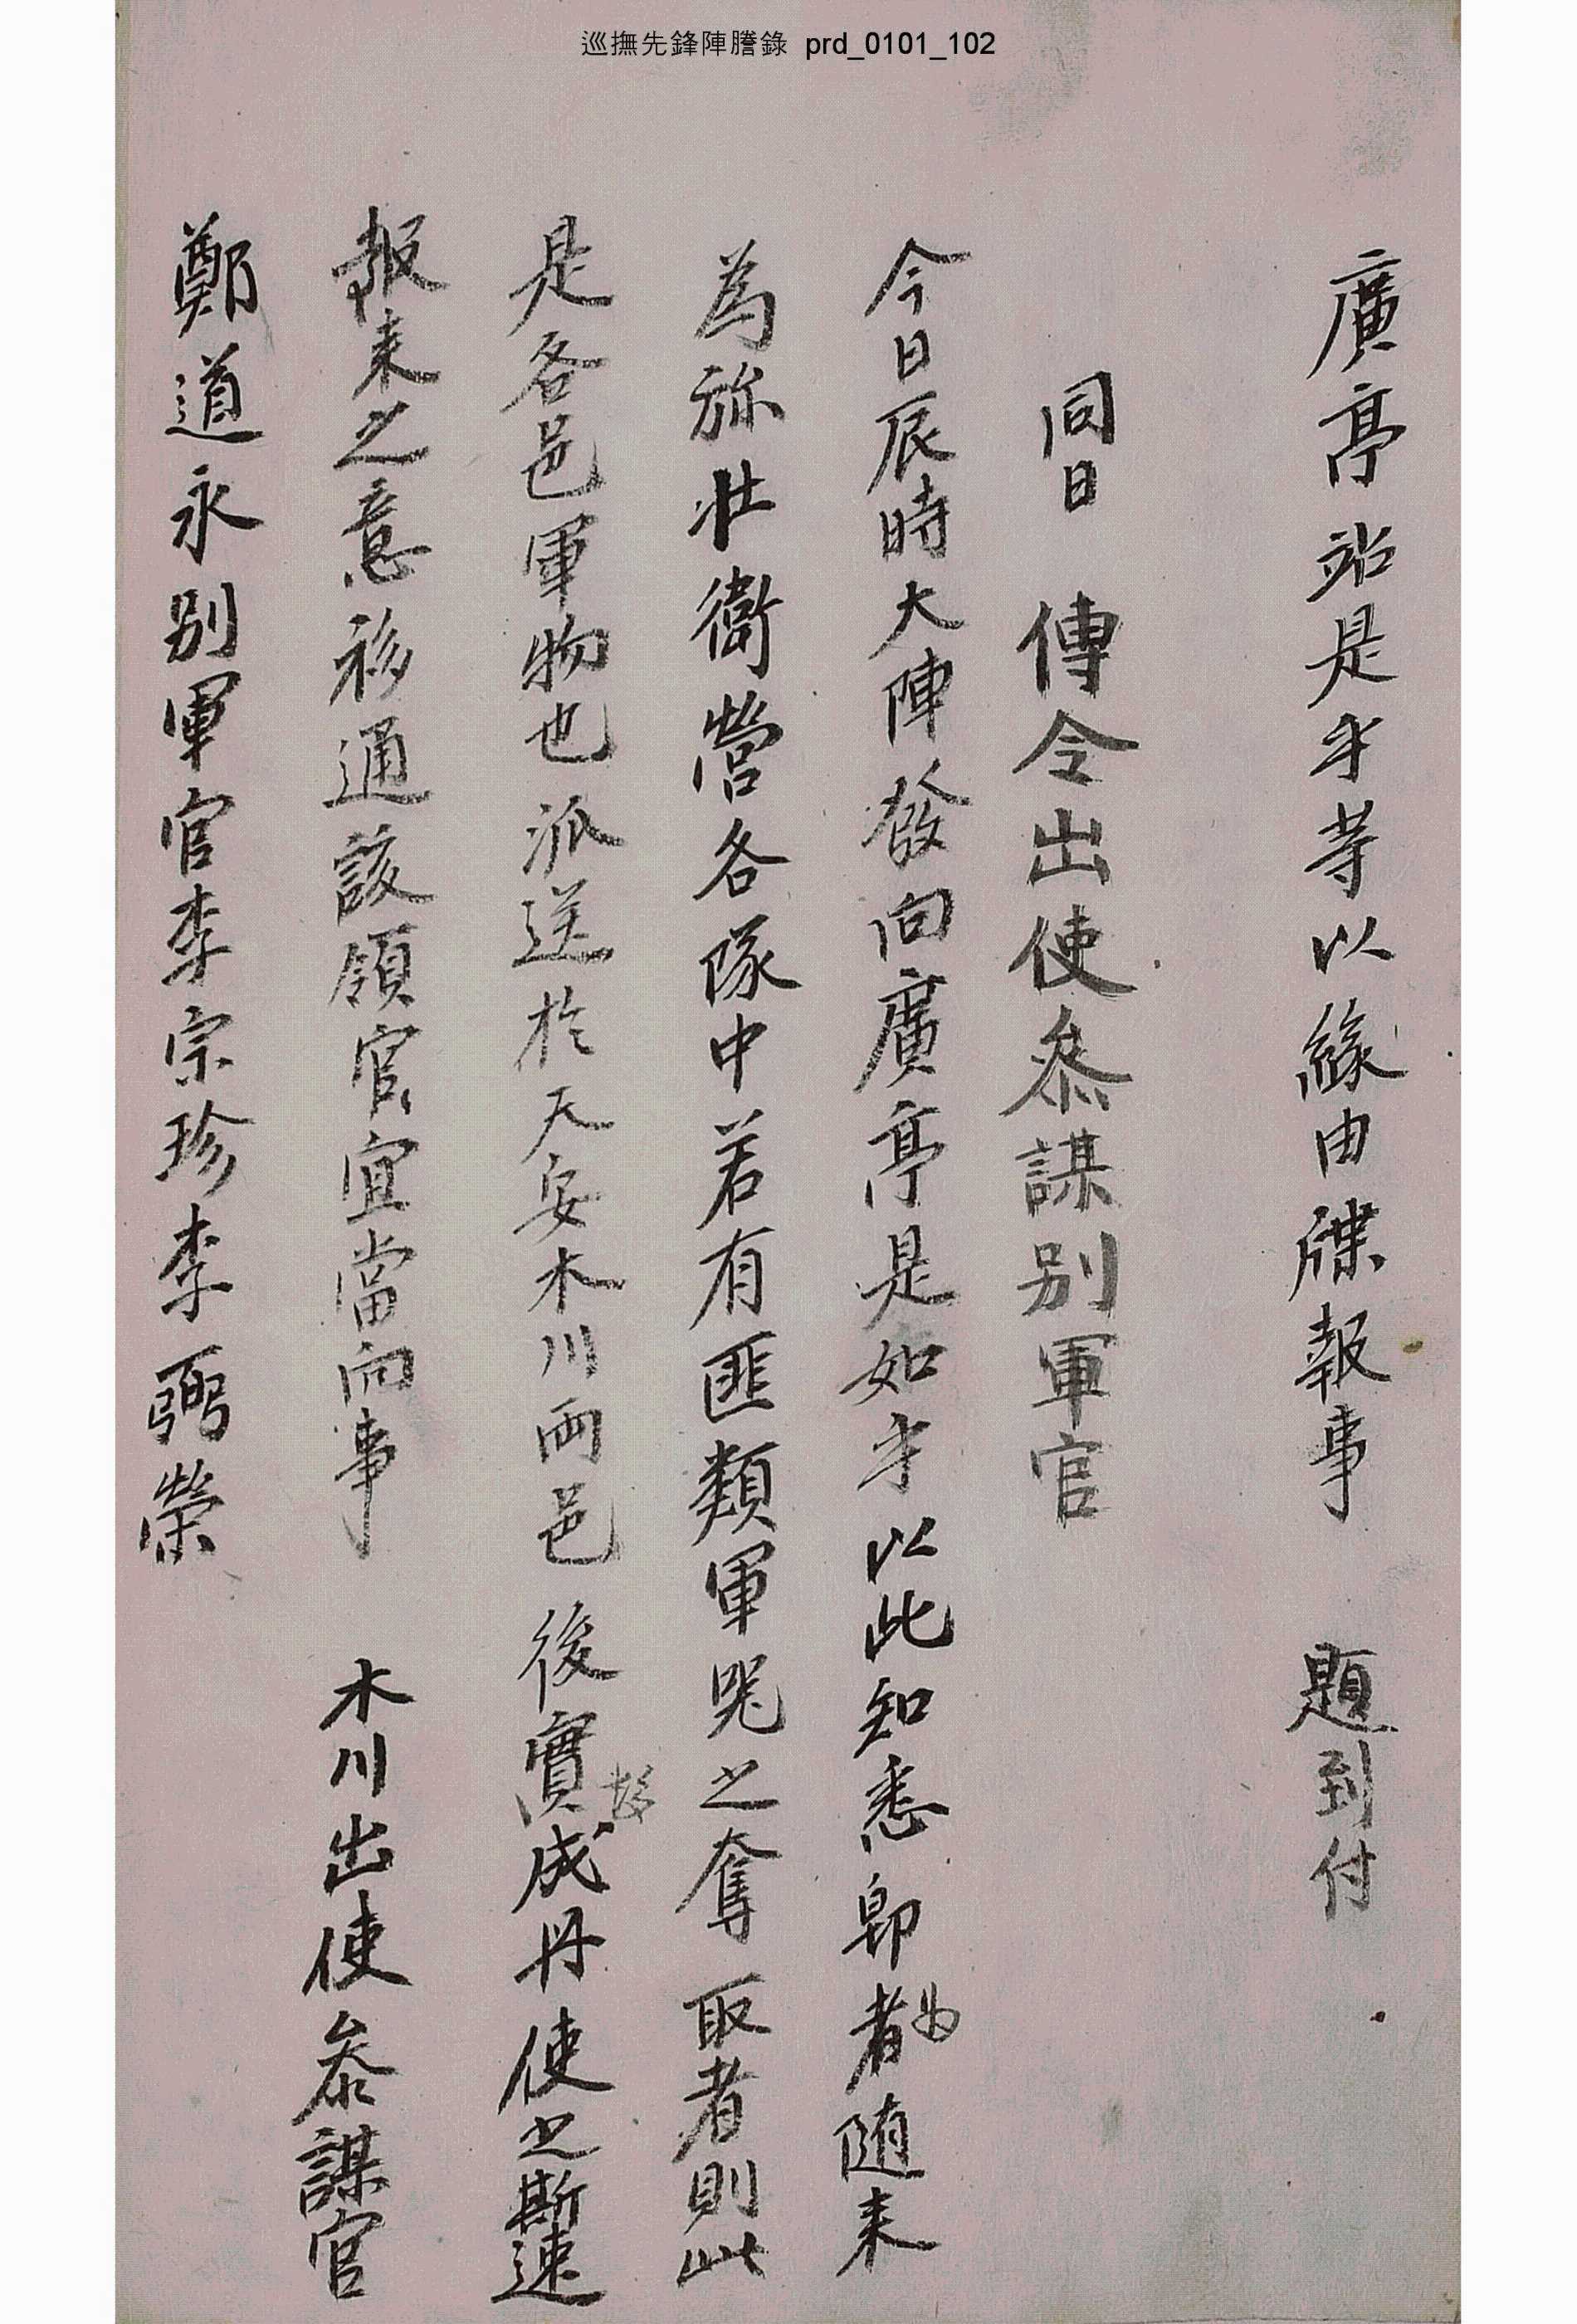 巡撫先鋒陣謄錄 prd_0101_102
廣亭站是乎等以緣由牒報事 題到付
同日 傳令出使叅謀別軍官
今日辰時大陣發向廣亭是如乎以此知悉卽為者随来
為旀壯衛營各隊中若有匪類軍咒之奪取者則此
是各邑軍物也派送於天安木川兩邑後實成丹使之斯速
報来之意移通該領官宜當向事 木川出使叅謀官
鄭道永別軍官李宗珍李弼榮